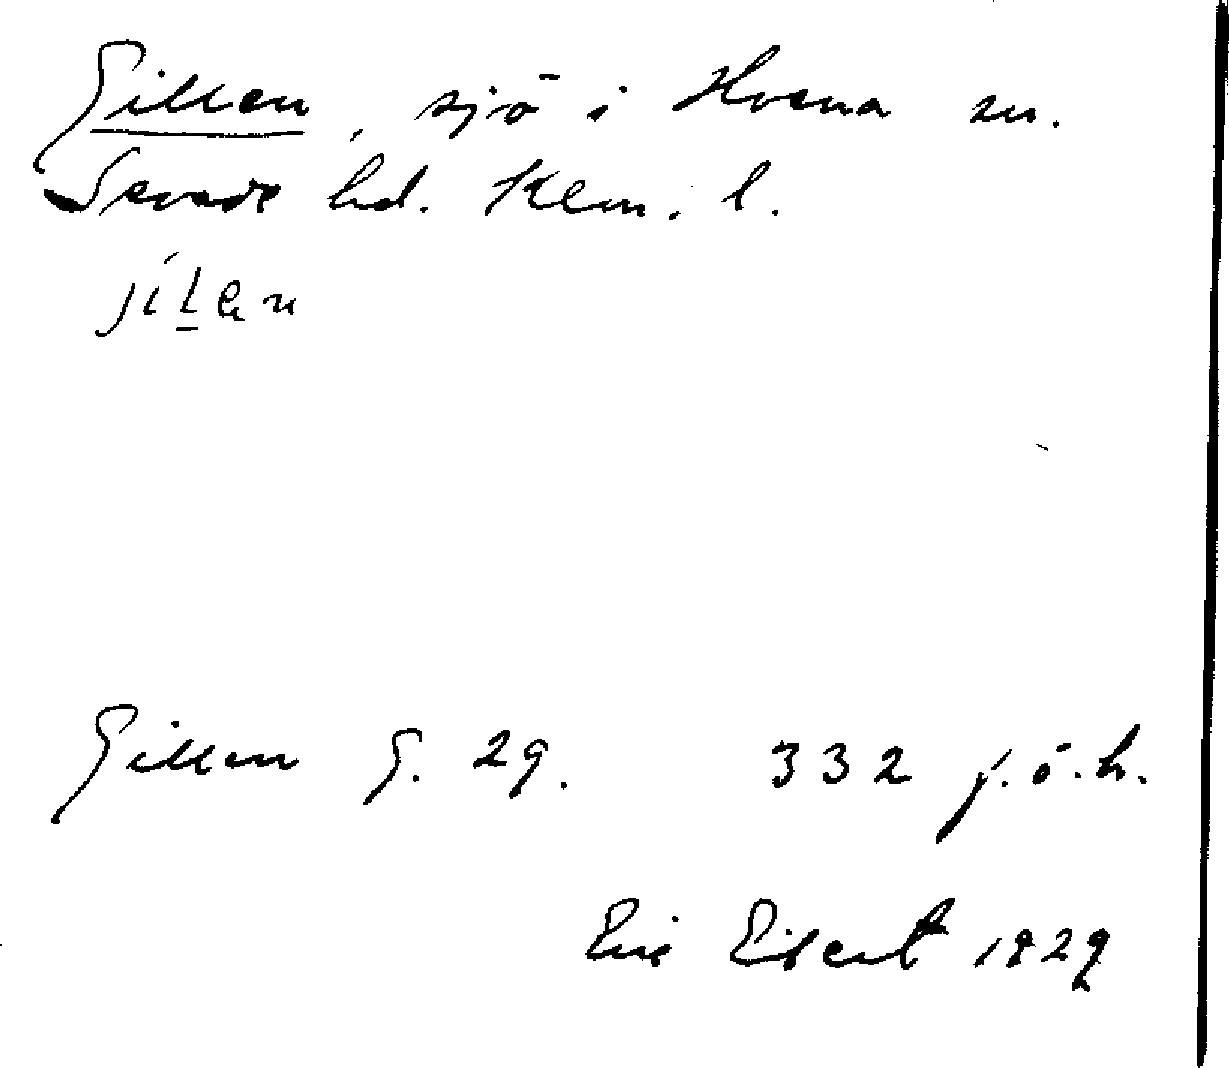 Gillen, sjö i Hvena sn.
Sevede hd. Klm. l.
jílen
Gillen G. 29. 332 f. ö. h.
Eric Elsert 1929